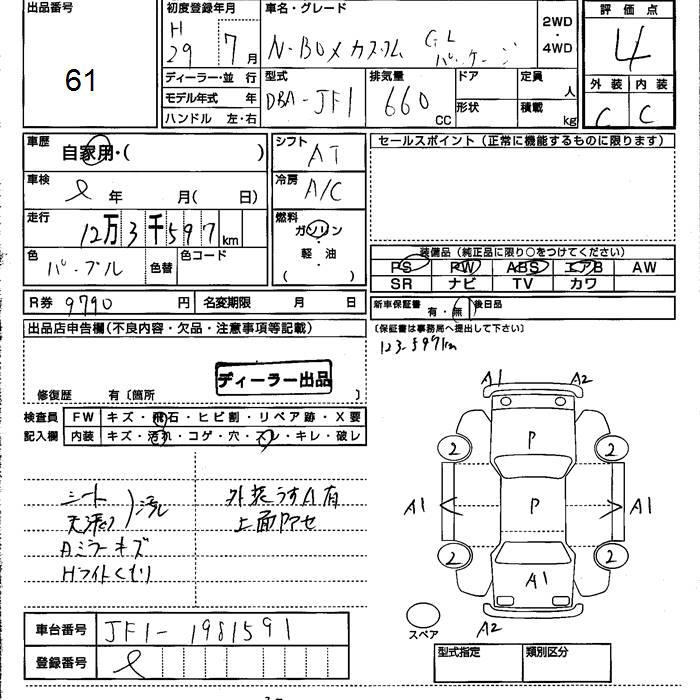 出品番号
61
初度登録年月
H
29
7月
ディーラー・並 行
モデル年式 年
ハンドル 左・右
車名・グレード
N-BOXカスタム GL
パッケージ
2WD
・
4WD
評価点
4
外装 内装
C C
型式
DBA-JF1
排気量
660
CC
ドア
形状
定員
人
積載
kg
車歴
自家用・( )
車検
年 月( 日)
走行
12万3千597km
色
パープル
色替
色コード
R券 9790円
名変期限 月 日
シフト
AT
冷房
A/C
燃料
ガソリン
・
軽・油
( )
セールスポイント(正常に機能するものに限ります)
装備品(純正品に限り○をつけてください)
PS PW ABS エアB AW
SR ナビ TV カワ
新車保証書 有・無
後日品
(保証書は事務局へ提出して下さい)
123597km
出品店申告欄(不良内容・欠品・注意事項等記載)
ディーラー出品
修復歴 有〔箇所 〕
検査員
記入欄
FW キズ・飛石・ヒビ割・リペア跡・X要
内装 キズ・汚れ・コゲ・穴・スレ・キレ・破レ
シート
天張り
汚れ
Aミラーキズ
Hライトくもり
外装うすA有
上面ボケ
A1 A2
2 P 2
A1 P A1
2 A1 2
A2
スペア
車台番号 JF1-1981591
登録番号
型式指定 類別区分